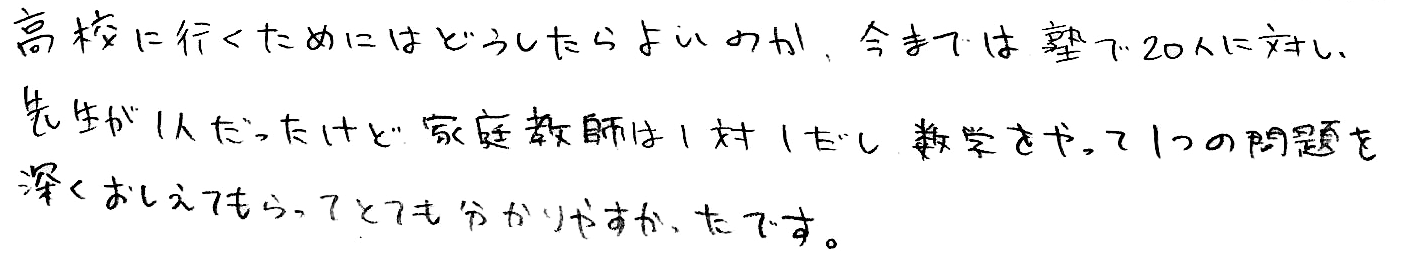 高校に行くためにはどうしたらよいのか、今までは塾で20人に対し、
先生が1人だったけど家庭教師は1対1だし数学をやって1つの問題を
深くおしえてもらってとても分かりやすかったです。